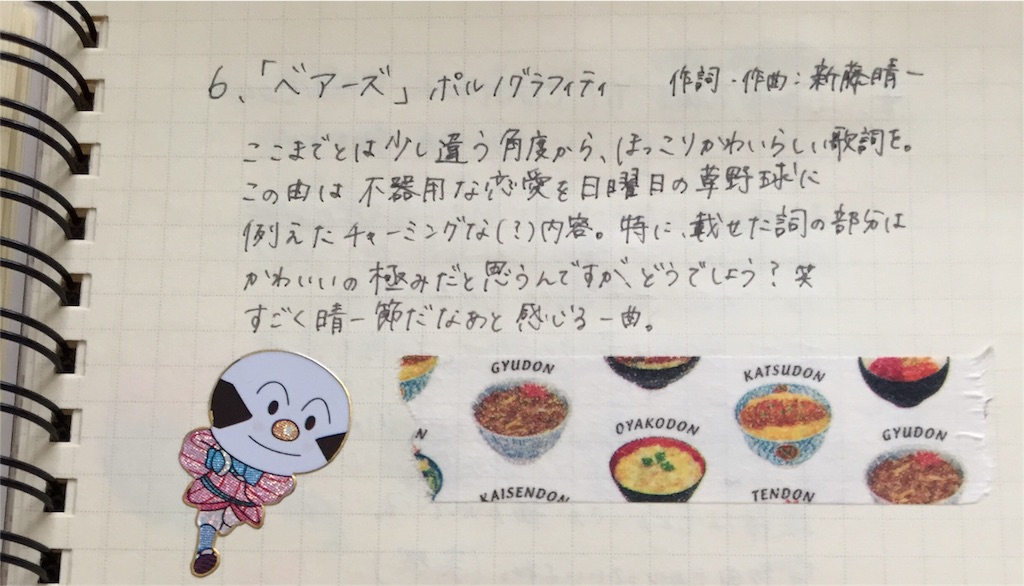 6、「ベアーズ」ポルノグラフィティ 作詞・作曲：新藤晴一
ここまでとは少し違う角度から、ほっこりかわいらしい歌詞を。
この曲は不器用な恋愛を日曜日の草野球に
例えたチャーミングな(?)内容。特に、載せた詞の部分は
かわいいの極みだと思うんですが、どうでしょう？笑
すごく晴一節だなあと感じる一曲。
GYUDON
KATSUDON
OYAKODON
GYUDON
N
KAISENDON
TENDON